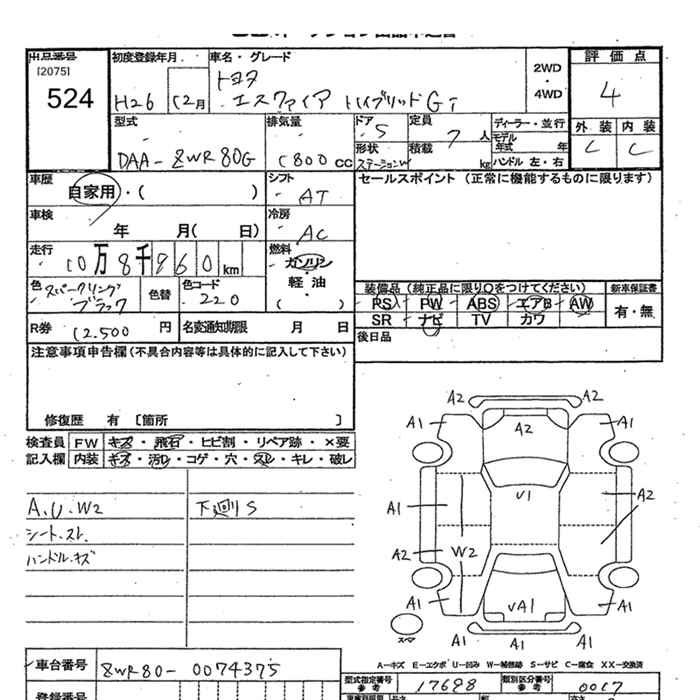 出品番号
[2075]
524
初度登録年月
H26 12月
車名・グレード
トヨタ
エスクァイア ハイブリッド Gi
2WD
・
4WD
評価点
4
外装 内装
C C
型式
DAA-ZWR80G
排気量
1800 cc
ドア
5
形状
ステーションW
定員
7 人
積載
kg
ディーラー・並行
モデル年式 年
ハンドル 左・右
車歴
自家用・( )
シフト
AT
車検
年 月( 日)
冷房
AC
走行
10万8千960 km
燃料
ガソリン
軽油
( )
色
スパークリング
ブラック
色替
色コード
220
R券
12,500 円
名変通知期限 月 日
セールスポイント (正常に機能するものに限ります)
装備品(純正品に限り○をつけてください)
新車保証書
PS PW ABS エアB AW
有・無
SR ナビ TV カワ
後日品
注意事項申告欄(不具合内容等は具体的に記入して下さい)
修復歴 有 〔箇所 〕
検査員
記入欄
FW キズ・飛石・ヒビ割・リペア跡・×要
内装 キズ・汚れ・コゲ・穴・スレ・キレ・破レ
A.U.W2
シート.スレ
ハンドル.キズ
下廻りS
A2 A2
A1 A2 A1
A1 U1 A2
A2 W2
A1 UA1 A1
スペア
A1 A1 A1
A-キズ E-エクボ U-凹み W-補修跡 S-サビ C-腐食 XX-交換済
車台番号
ZWR80-0074375
登録番号
型式指定番号
参考
17698
類別区分番号
参考
0017